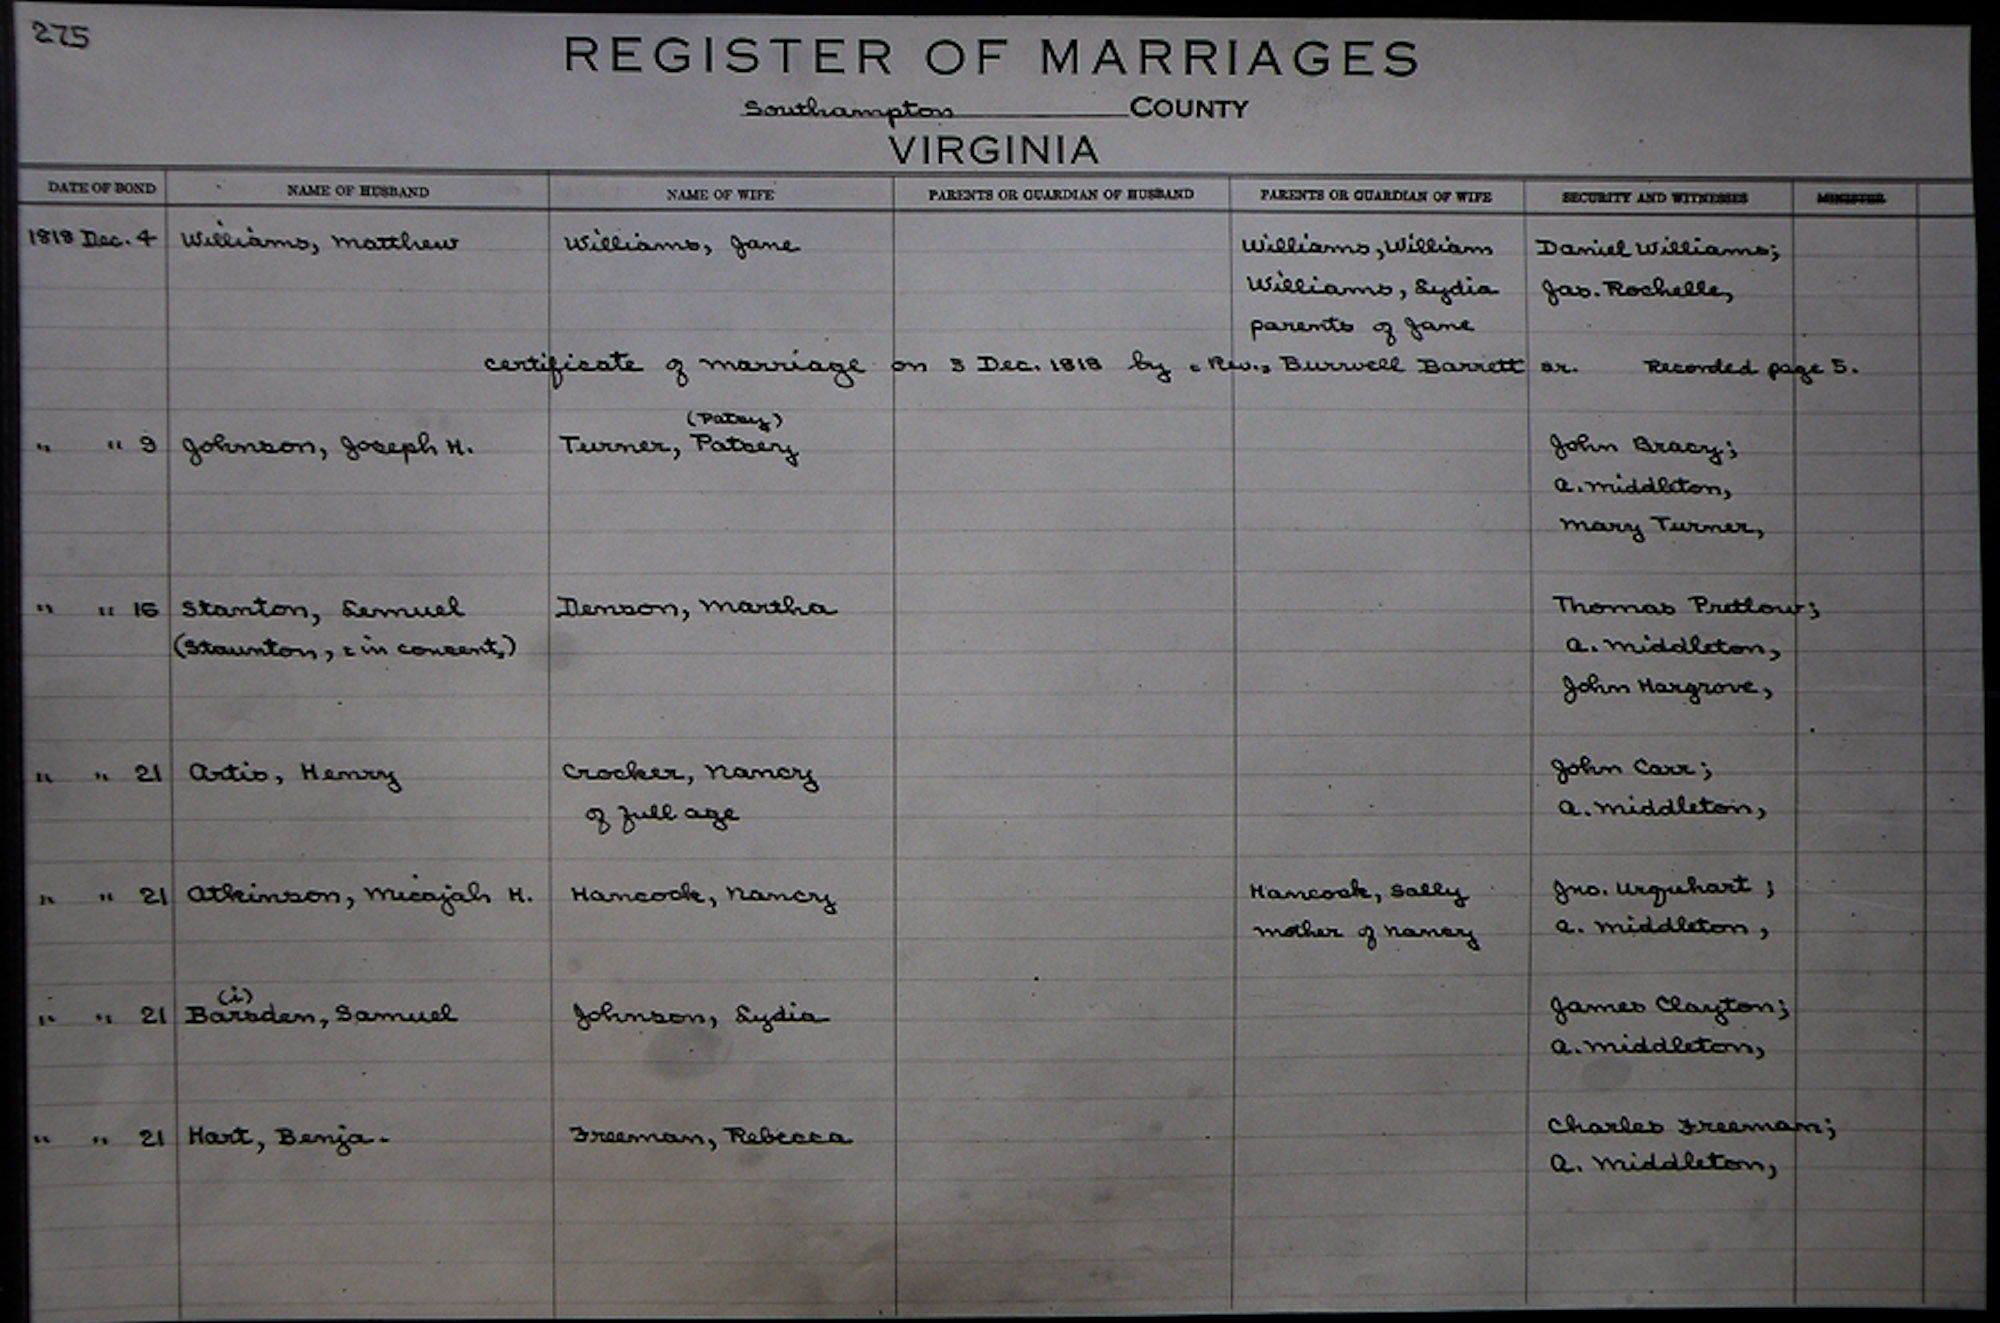 275
REGISTER OF MARRIAGES
Southampton COUNTY
VIRGINIA
DATE OF BOND NAME OF HUSBAND NAME OF WIFE PARENTS OR GUARDIAN OF HUSBAND PARENTS OR GUARDIAN OF WIFE SECURITY AND WITNESSES MINISTER
1818 Dec. 4 Williams, Matthew Williams, Jane Williams, William Daniel Williams;
Williams, Lydia Jas. Rochelle,
parents of Jane
certificate of marriage on Dec. 1818 by "Rev." Burwell Barrett sr. Recorded page 5.
(Patsy)
" " 9 Johnson, Joseph H. Turner, Patsey John Bracy;
A. Middleton,
Mary Turner,
" " 16 Stanton, Lemuel Denson, Martha Thomas Pretlow;
(Staunton, : in consent,) A. Middleton,
John Hargrove,
" " 21 Artis, Henry Crocker, Nancy John Carr;
of full age A. Middleton,
" " 21 Atkinson, Micajah H. Hancock, Nancy Hancock, Sally Jno. Urquhart ;
mother of Nancy A. Middleton ,
(i)
" " 21 Barsden, Samuel Johnson, Lydia James Clayton;
A. Middleton,
" " 21 Hart, Benja. Freeman, Rebecca Charles Freeman;
A. Middleton,